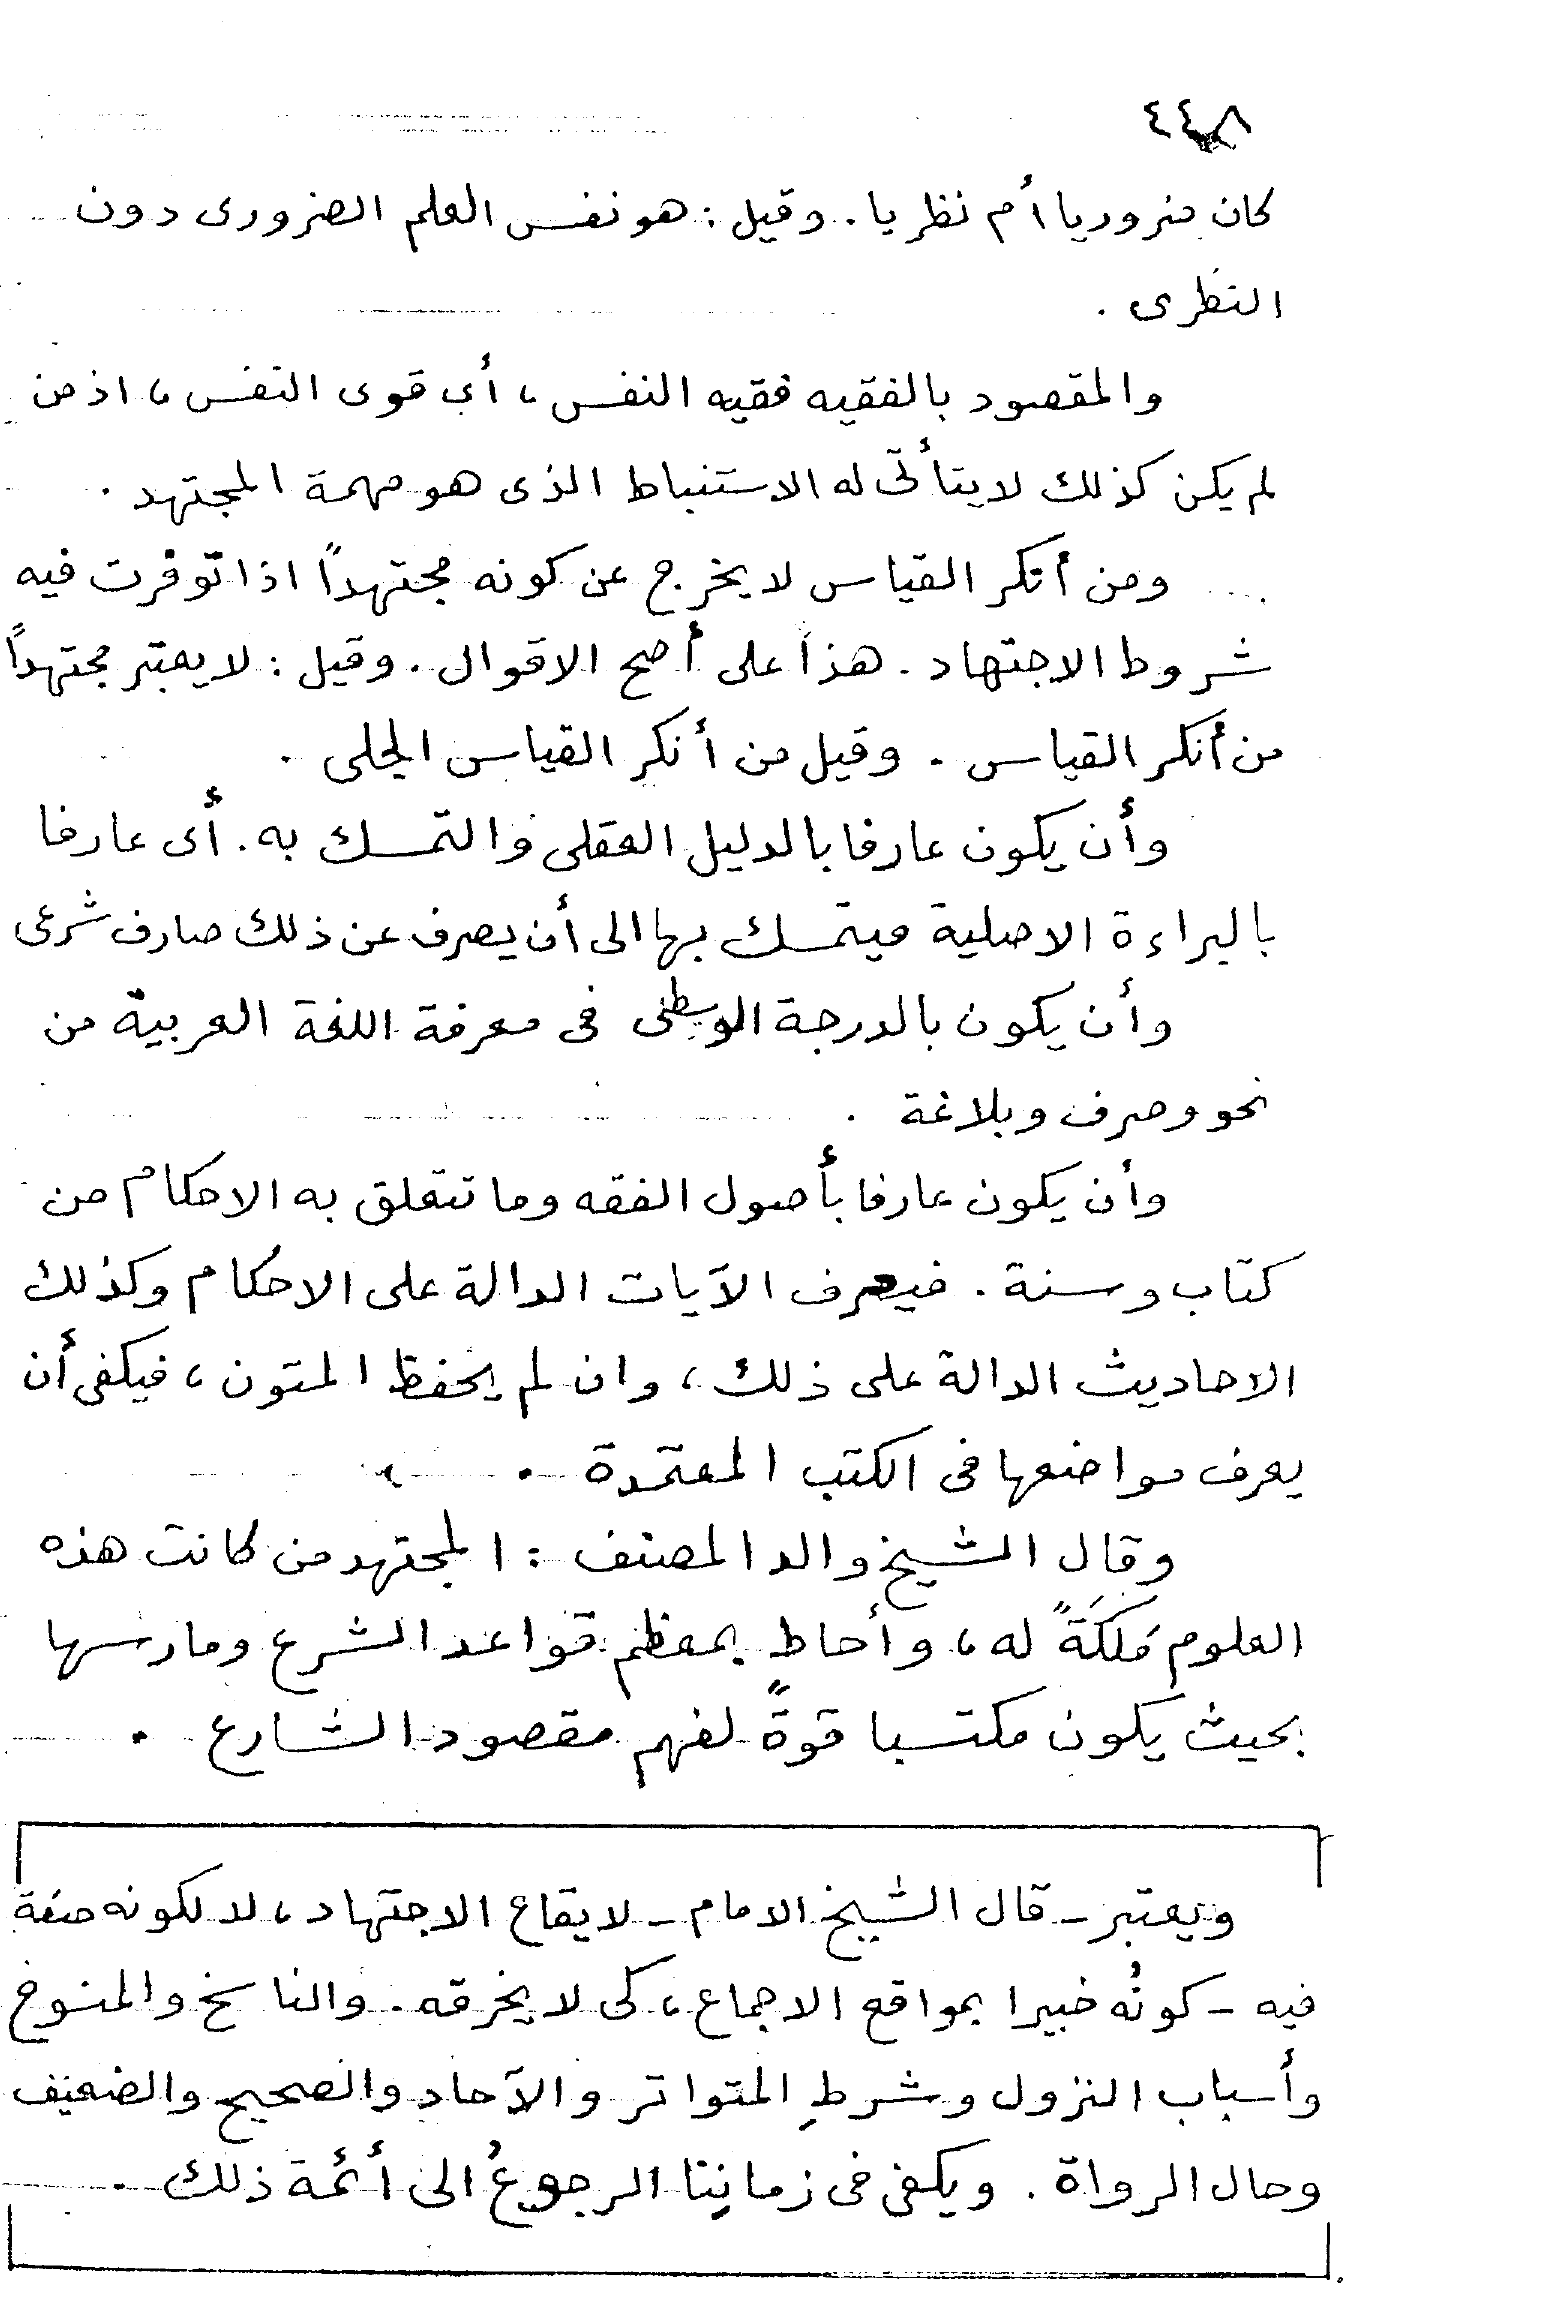 ٤٤٨
كان ضروريا أم نظريا. وقيل: هو نفس العلم الضرورى دون
النظرى.
والمقصود بالفقيه فقيه النفس، أى قوى النفس، اذ من
لم يكن كذلك لا يتأتى له الاستنباط الذى هو مهمة المجتهد.
ومن أنكر القياس لا يخرج عن كونه مجتهداً اذا توفرت فيه
شروط الاجتهاد. هذا على أصح الاقوال. وقيل: لا يعتبر مجتهداً
من أنكر القياس. وقيل من أنكر القياس الجلى.
وأن يكون عارفا بالدليل العقلى والتمسك به. أى عارفا
بالبراءة الاصلية فيتمسك بها الى أن يصرف عن ذلك صارف شرعى
وأن يكون بالدرجة الوسطى فى معرفة اللغة العربية من
نحو وصرف وبلاغة.
وأن يكون عارفا بأصول الفقه وما تتعلق به الاحكام من
كتاب وسنة. فيعرف الآيات الدالة على الاحكام وكذلك
الاحاديث الدالة على ذلك، وان لم يحفظ المتون، فيكفى أن
يعرف مواضعها فى الكتب المعتمدة.
وقال الشيخ والد المصنف: المجتهد من كانت هذه
العلوم مَلَكَةً له، وأحاط بمعظم قواعد الشرع ومارسها
بحيث يكون مكتسبا قوةً لفهم مقصود الشارع.
ويعتبر - قال الشيخ الامام - لايقاع الاجتهاد، لا لكونه صفة
فيه - كونُه خبيرا بمواقع الاجماع، كى لا يخرقه. والناسخ والمنسوخ
وأسباب النزول وشرطِ المتواتر والآحاد والصحيح والضعيف
وحال الرواة. ويكفى فى زماننا الرجوعُ الى أئمة ذلك.